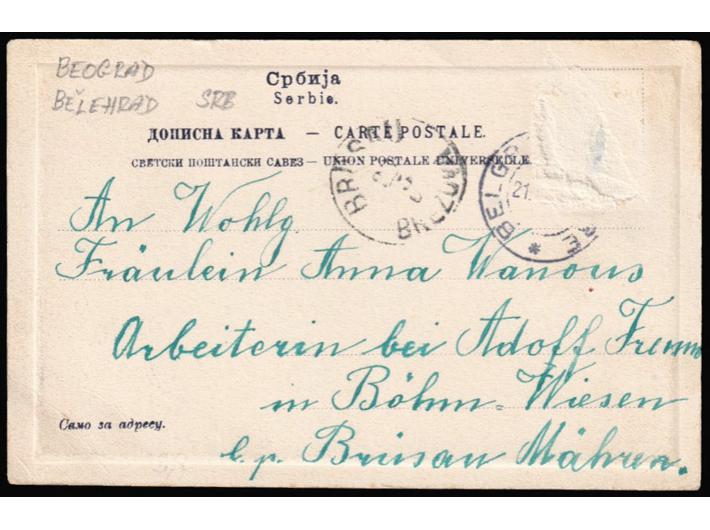 BEOGRAD
BEŠEHRAD SRB
Србија
Serbie.
ДОПИСНА КАРТА — CARTE POSTALE.
СВЕТСКИ ПОШТАНСКИ САВЕЗ — UNION POSTALE UNIVERSELLE.
An Wohlg.
Fräulein Anna Wanous
Arbeiterin bei Adolf
in Böhm-Wiesen
b. p. Brüsau Mähren.
Само за адресу.
BRÜSAU
BELG
21.